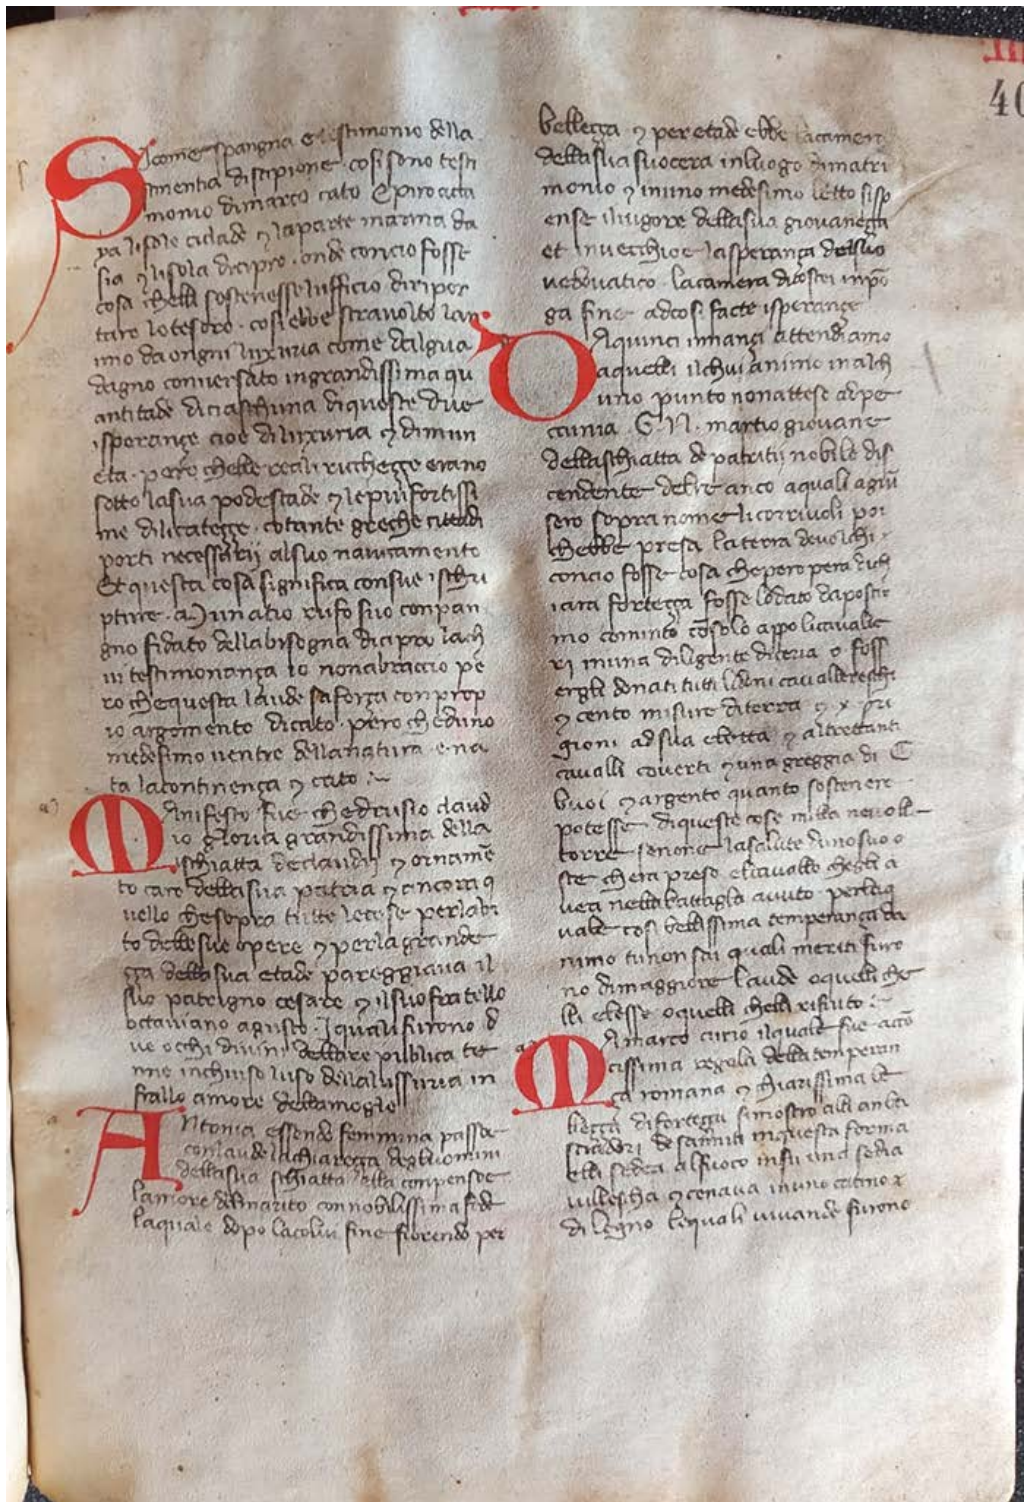 III
40
Sicome spangna e testimonio della
stinentia discipione cosi sono testi
monio dimarco cato Epiro acta
ya lisole ciclade ⁊ laparte marina da
sia ⁊ lisola dicipro onde concio fosse
cosa chelli sostenesse lufficio diripor
tare lotesoro cosi ebbe stravolto lan
imo da ongni luxuria come dalgua
dagno conversato ingrandissima qu
antitade diciaschuna diqueste due
isperançe cioe diluxuria ⁊ dimun
eta pero chelle reali ricchegge erano
sotto lasua podestade ⁊ lepiu fortissi
me dilicategge cotante greche cittadi
porti necessarij alsuo navicamento
Et questa cosa significa consue ischri
pture a Munatio rufo suo conpan
gno fidato dellabisogna dicipro lach
ui testimonança io nonabraccio pe
ro chequesta laude saforça conprop
io argomento dicato pero cheduno
medesimo uentre dellanatura e na
ta lacontinença ⁊ cato
Manifesto fue chedrusio claud
io gloria grandissima della
ischiatta declaudij ⁊ orname̅
to caro dellasua patria ⁊ ancora q
uello chesopra tutte lecose perlabi
to dellesue opere ⁊ perlagrande
ça dellasua etade pareggiava il
suo patrigno cesare ⁊ ilsuofratello
octaviano agusto Iquali furono d
ue occhi divini dellare publica te
nne inchiuso luso dellalussuria in
frallo amore dellamogle
Antonia essendo femmina passa
con laude lachiareçça degluomini
dellasua schiatta ella conpensoe
lamore delmarito connobilissima fede
laquale dopo lacolui fine fiorendo per
belleçça ⁊ per etade ebbe lacamera
dellasua suocera inluogo dimatri
monio ⁊ inuno medesimo letto sisp
ense iluigore dellasua giovaneçça
et invecchioe lasperança delsuo
vedovatico lacamera dicostei inpo̅
ga fine adcosi facte isperançe
Daquinci innançi attendiamo
aquelli ilchui animo inalch
uno punto nonattese adpe
ccunia G. N. martio giovane
dellaschiatta de patritij nobile dis
cendente delre anco aquali agiu̅
sero sopranome licorrivoli poi
chebbe presa laterra devolchi
concio fosse cosa chepero pera dich
iara forteçça fosse lodato dapostu
mo cominto co̅solo appo licavalie
ri inuna diligente diceria o foss
ergli donati tutti lidoni cavallereschi
⁊ cento misure diterra ⁊ x pri
gioni adsua eletta ⁊ altrettanti
cavalli coverti ⁊ una greggia di C
buoi ⁊ argento quanto sostenere
potesse diqueste cose nulla nevolle
torre senone lasalute dunosuo o
ste chera preso elcavallo chegli a
vea nellabattagla avuto perlaq
vale cosi bellissima temperança da
nimo tunon sai quali meriti furo
no dimaggiore laude oquelli che
lli elesse oquelli chelli rifiuto
Marco curio ilquale fue acco̅
cissima regola della temperan
ça romana ⁊ chiarissima be
lleçça diforteçça simostro alli anba
sciadori de sanniti inquesta forma
elli sedea alfuoco insu una sedia
vullescha ⁊ cenava inuno catino
di legno lequali vivande furono